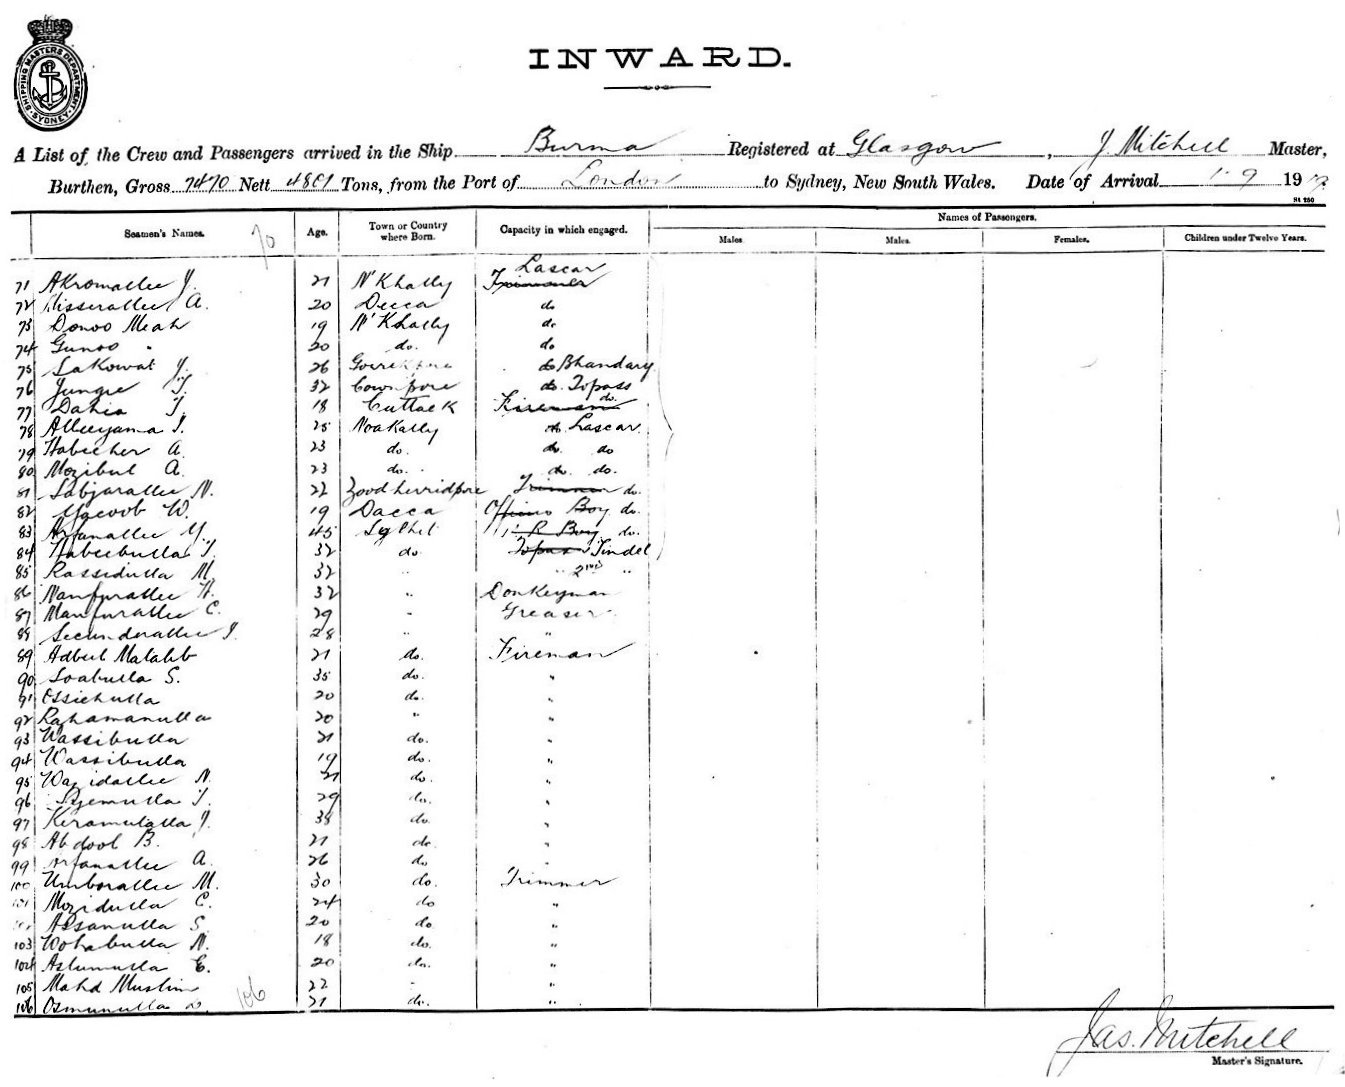 SHIPPING MASTERS DEPARTMENT SYDNEY
INWARD.
A List of the Crew and Passengers arrived in the Ship Burma Registered at Glasgow, J Mitchell Master,
Burthen, Gross 7470 Nett Tons, from the Port of London to Sydney, New South Wales. Date of Arrival 1·9 19
Names of Passengers.
Seamen's Names. 70 Age. Town or Country where Born. Capacity in which engaged. Males Males. Females. Children under Twelve Years.
Lascar
71 Akromallee J. 21 N'Khally Trimmer
72 A. 20 Decca do
73 Donoo Meah 19 N'Khally do
74 Gunoo " 20 do. do
75 Sakowat J. 26 do Bhandary
76 Jungie T. 32 Cownpore do Topass
77 Dahia T. 18 Cuttack Fireman do.
78 Alleeyama I. 25 Noakally do Lascar.
79 Habeeher A. 23 do. do. do
80 Mozibul A. 23 do. do. do.
81 Sabjarallee N. 22 Trimmer do.
82 Yacoob W. 19 Dacca Officers Boy do.
83 Arfanallee Y. 45 Sylhet E R Boy do.
84 Habeebulla T. 32 do Topass Tindel
85 Rassidulla M. 32 " " 2nd "
86 Manfurallee H. 32 " Donkeyman
87 Manfurallee C. 29 " Greaser
88 Secundurallee J. 28 " "
89 Adbul Matalib 21 do. Fireman
90 Soabulla S. 35 do. "
91 Ossichulla 20 do. "
92 Rahamanulla 20 " "
93 Wassibulla 21 do. "
94 Wassibulla 19 do. "
95 Wazidallee N. 21 do. "
96 Syemulla I. 29 do. "
97 Keramutalla J. 38 do. "
98 Abdool B. 21 do. "
99 Arfanallee A. 26 do "
100 Umborallee M. 30 do. Trimmer
101 Mozidulla C. 24 do "
102 Assanulla S. 20 do. "
103 Wohabulla N. 18 do. "
104 Aslumulla E. 20 do. "
105 Mahd Muslim 22 " "
106 Osmunulla 106 21 do. "
Jas. Mitchell
Master's Signature.